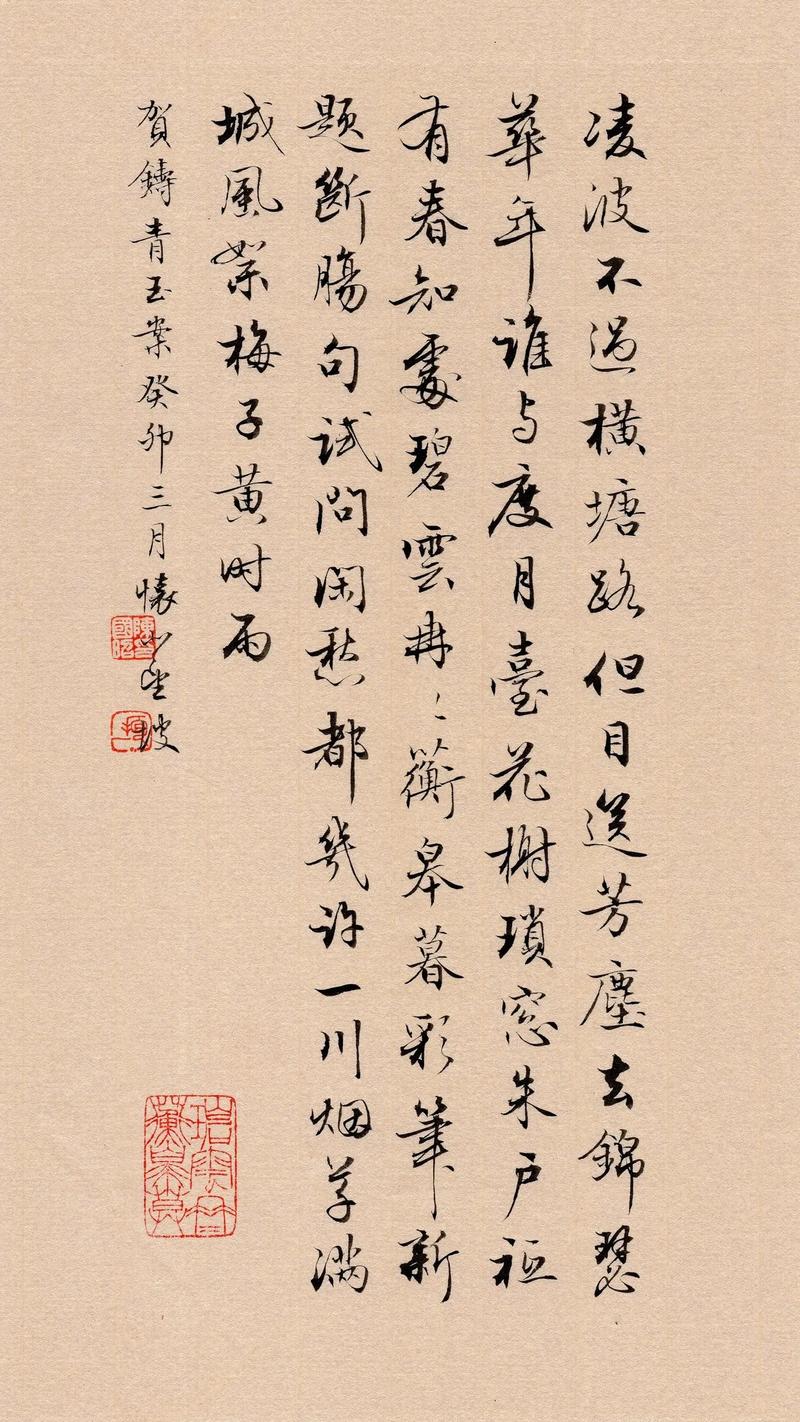 凌波不過橫塘路但目送芳塵去錦瑟
華年誰与度月臺花榭瑣窓朱户祗
有春知處碧雲冉〻蘅皋暮彩筆新
題斷腸句試問闲愁都幾許一川烟草满
城風絮梅子黄时雨
賀鑄青玉案癸卯三月懷